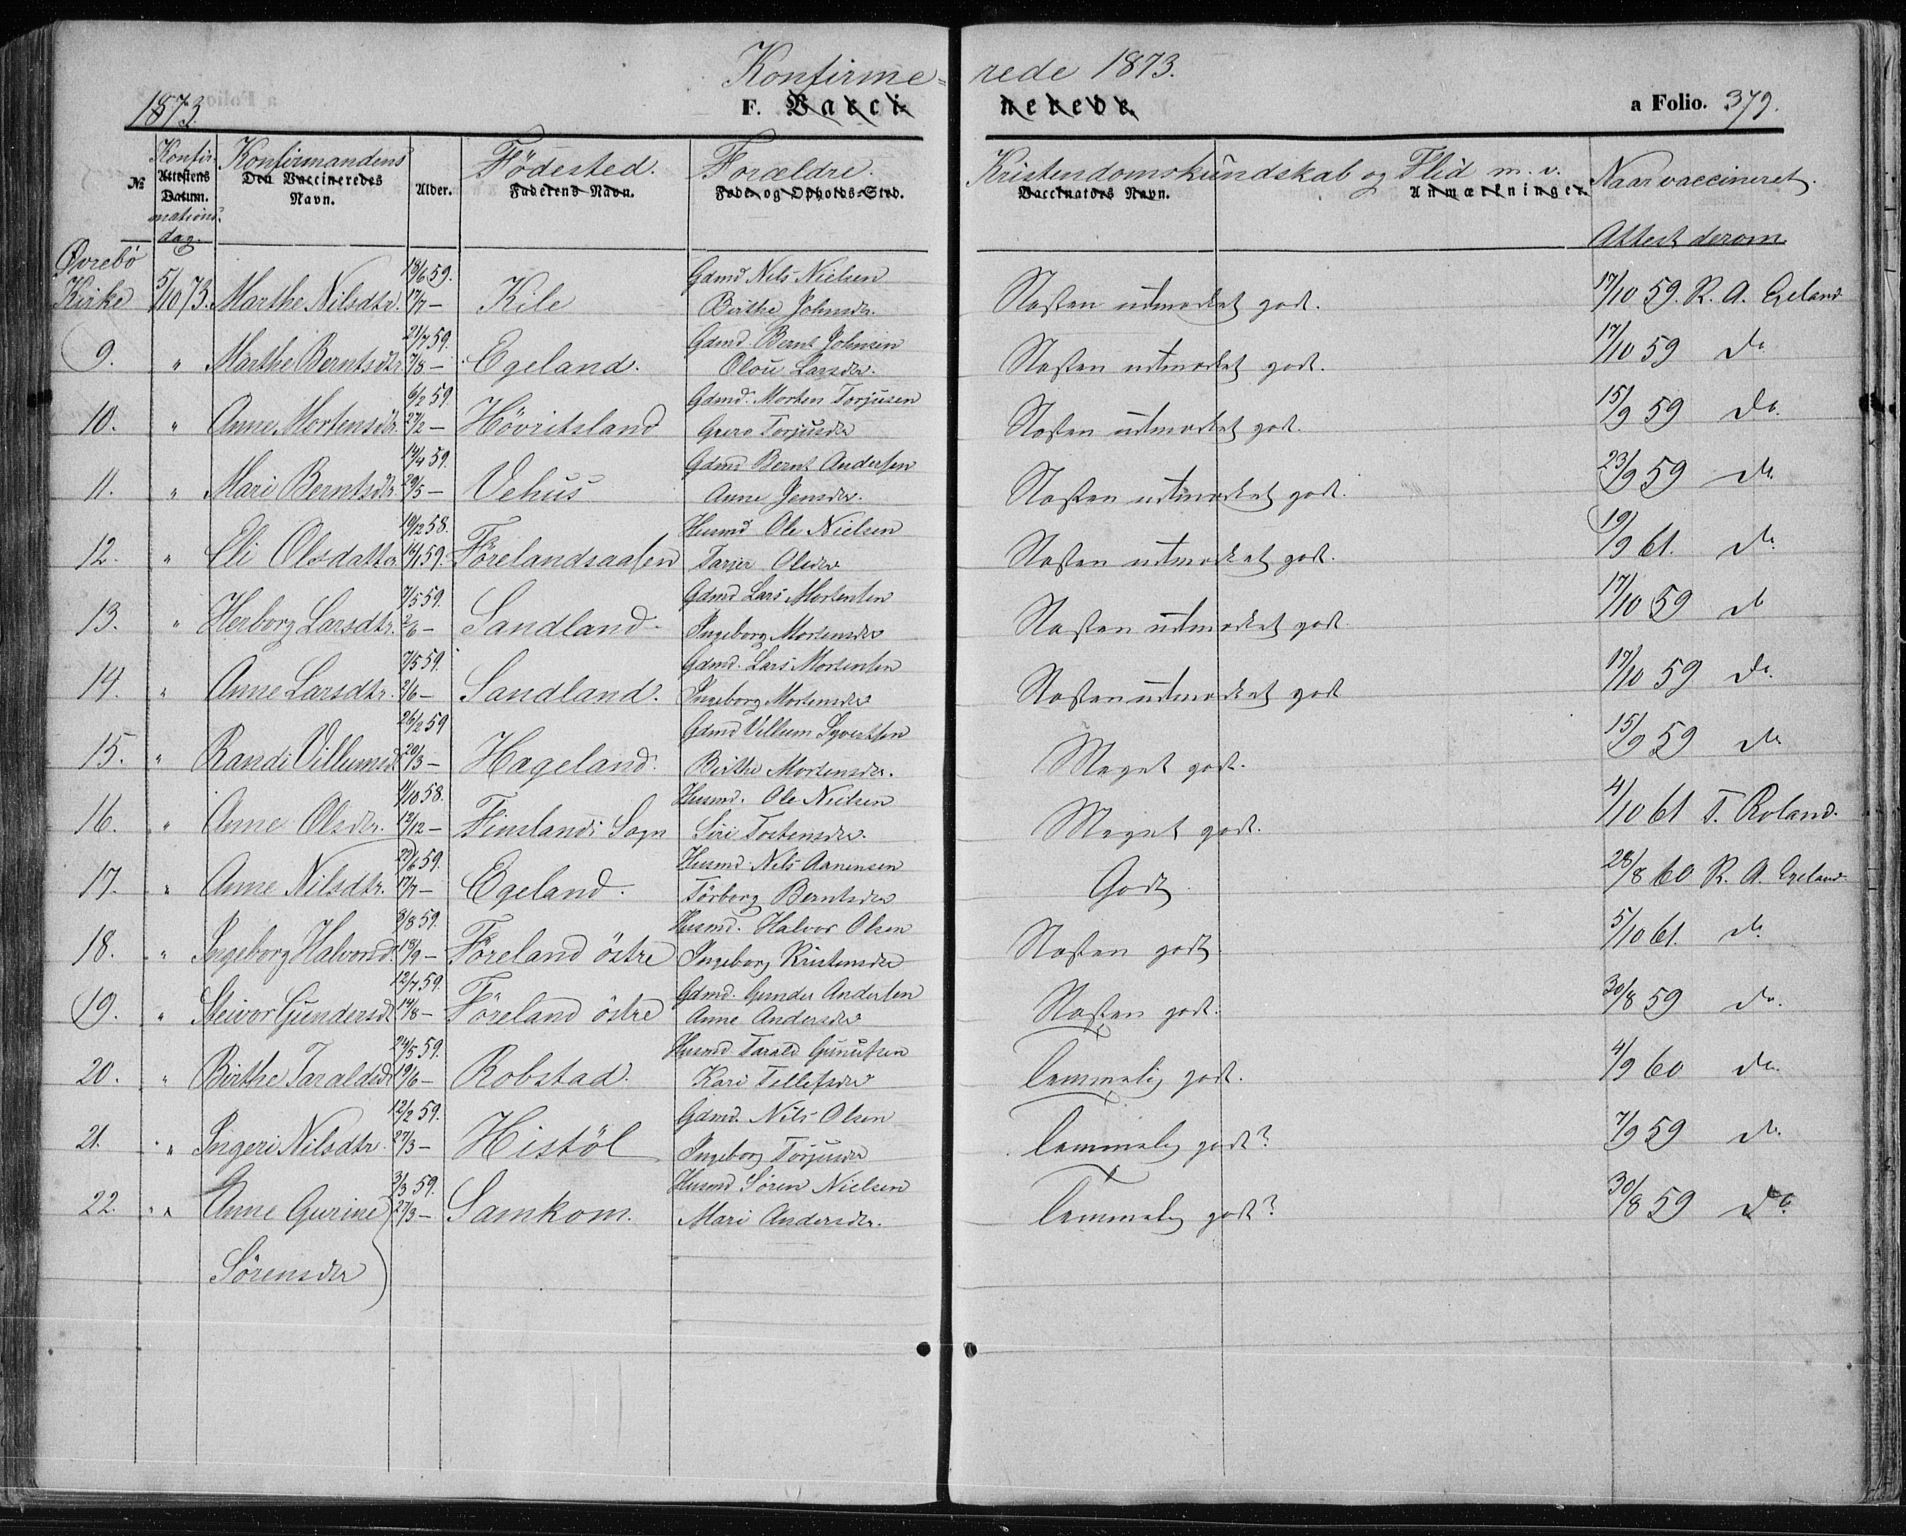 Konfirme- rede 1873.
1873. F. Vacci- nerede. a Folio. 379.
№ Attestens Datum. Konfirmations dag. Den Vaccineredes Navn. Konfirmandens Alder. Födested. Faderens Navn. Forældre. Føde- og Opholds-Sted. Kristendomskundskab og Flid m. v. Vaccinators Navn. Anmærkninger. Naar vaccineret. Attest derom.
Øvrebö 18/6 59. Gdmd Nils Nielsen
Kirke 5/10 73. Marthe Nilsdtr. 17/7 — Kile Birthe Johnsdr. Næsten udmærket godt. 17/10 59. R. A. Egeland
21/7 59. Gdmd. Bernt Johnsen
9. " Marthe Berntsdtr. 7/8 — Egeland. Olou Larsdr. Næsten udmærket godt. 17/10 59 do
6/2 59. Gdmd. Morten Torjusen
10. " Anne Mortensdtr. 27/2 — Hövritsland Guro Torjusdr Næsten udmærket godt. 15/9 59 do.
14/4 59. Gdmd Bernt Andersen
11. " Mari Berntsdtr. 29/5 — Vehus Anne Jensdr. Næsten udmærket godt. 23/9 59 do
19/12 58. Husmd Ole Nielsen
12. " Eli Olsdatter 14/1 59. Förelandsaasen Tarjer Olsdr Næsten udmærket godt. 19/9 61. do
7/5 59. Gdmd Lars Mortensen
13. " Herborg Larsdtr. 2/6 — Sandland. Ingeborg Mortensdr Næsten udmærket godt. 17/10 59 do
7/5 59. Gdmd. Lars Mortensen
14. " Anne Larsdtr. 2/6 — Sandland. Ingeborg Mortensdr Næsten udmærket godt 17/10 59 do.
26/2 59 Gdmd Villum Syvertsen
15. " Randi Villumsdt 20/3 — Hageland. Birthe Mortensdr. Meget godt. 15/9 59 do
11/10 58. Husmd. Ole Nielsen
16. " Anne Olsdr. 12/12 — Finslands Sogn Siri Tostensdr. Meget godt. 4/10 61 T. Roland.
23/6 59. Husmd. Nils Aanensen
17. " Anne Nilsdtr. 17/7 — Egeland. Törberg Berntsdr Godt. 28/8 60 R. A. Egeland
3/8 59. Husmd. Halvor Olsen
18. " Ingeborg Halvorsd. 18/9 — Föreland östre Ingeborg Kristensdr Næsten godt. 5/10 61. do
12/7 59. Gdmd. Gunder Andersen
19. " Steivor Gundersdt 14/8 — Föreland östre Anne Andersdr Næsten godt. 30/8 59 do.
24/5 59. Husmd Tarald Gunulfsen
20. " Birthe Taraldsdt 19/6 — Robstad. Kari Tellefsdr Temmelig godt. 4/9 60 do.
12/2 59. Gdmd. Nils Olsen
21. " Ingeri Nilsdtr. 27/3 — Histöl Ingeborg Torjusdr Temmelig godt? 7/9 59 do.
3/3 59. Husmd Sören Nielsen
22. " Anne Gurine 27/3 — Samkom. Mari Andersdr. Temmelig godt? 30/8 59 do
Sörensdr